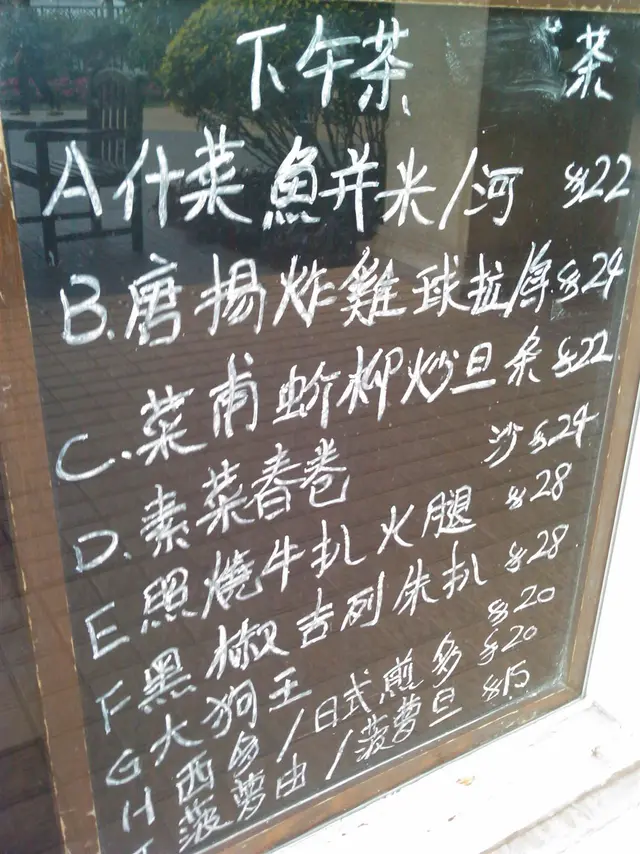 下午茶 茶
A什菜魚并米/河 $22
B.唐揚炸雞球拉 $24
C.菜甫蚧柳炒旦 $22
D.素菜春卷 沙 $24
E照燒牛扒火腿 $28
F黑椒吉列朱扒 $28
G大狗王 $20
H西多/日式煎多 $20
I 菠蘿由/菠蘿旦 $15